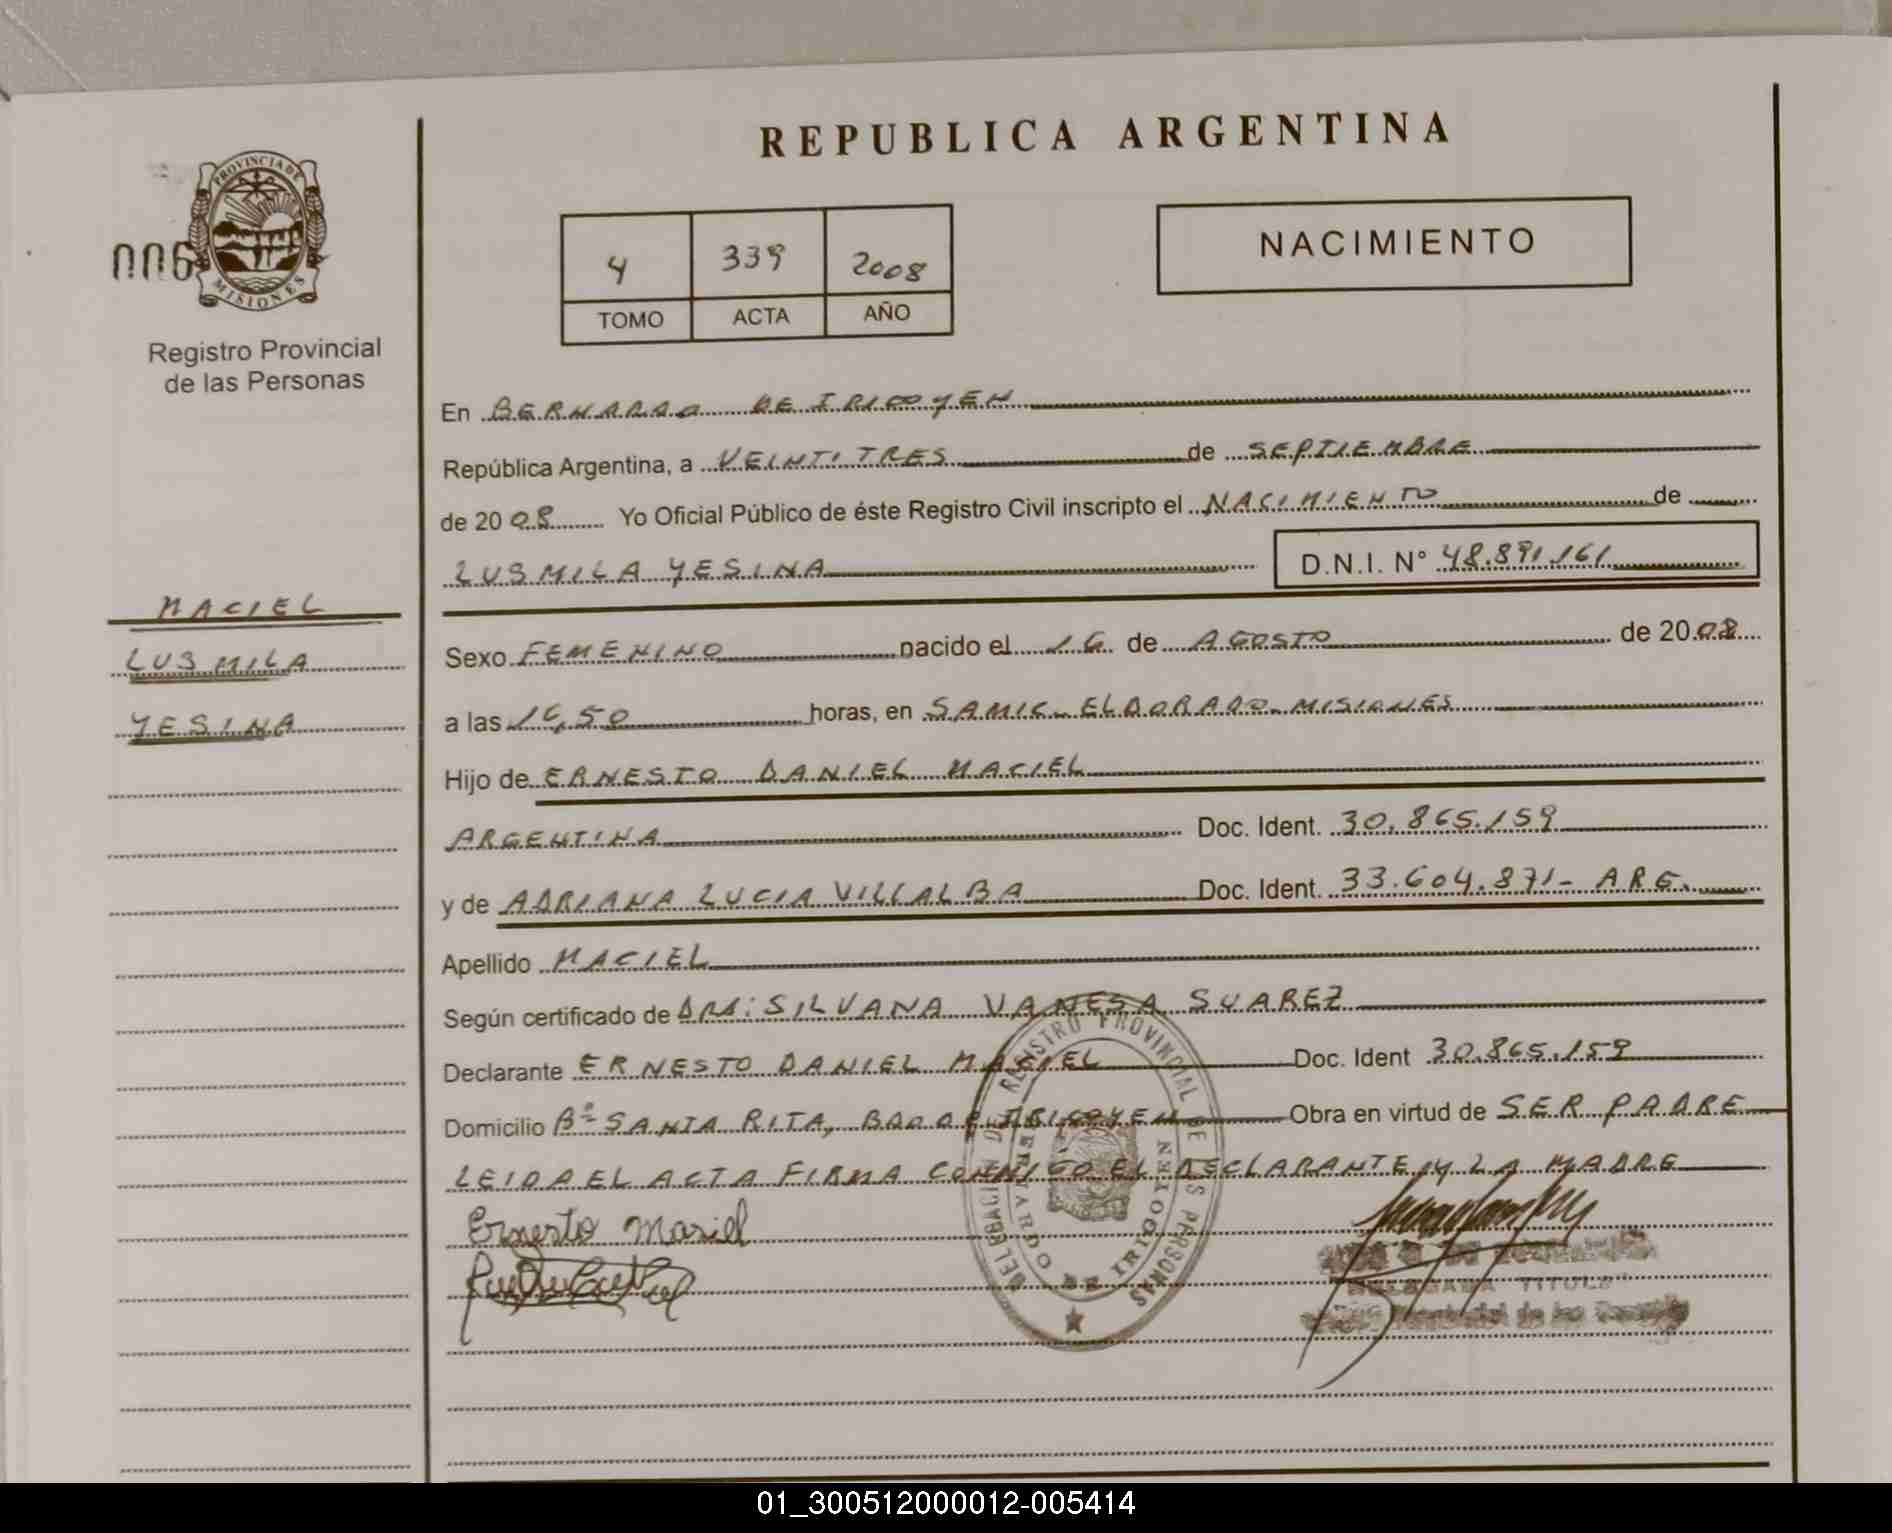 REPUBLICA ARGENTINA
PROVINCIA DE
MISIONES
006
Registro Provincial
de las Personas
4 339 2008
TOMO ACTA AÑO
NACIMIENTO
En BERNARDO DE IRIGOYEN
República Argentina, a VEINTITRES de SEPTIEMBRE
de 2008 Yo Oficial Público de éste Registro Civil inscripto el NACIMIENTO de
LUSMILA YESINA D.N.I. N° 48.891.161
MACIEL
LUSMILA
YESINA
Sexo FEMENINO nacido el 16 de AGOSTO de 2008
a las 16,50 horas, en SAMIC - ELDORADO - MISIONES
Hijo de ERNESTO DANIEL MACIEL
ARGENTINA Doc. Ident. 30.865.159
y de ADRIANA LUCIA VILLALBA Doc. Ident. 33.604.871 - ARG.
Apellido MACIEL
Según certificado de DRA: SILVANA VANESA SUAREZ
Declarante ERNESTO DANIEL MACIEL Doc. Ident 30.865.159
Domicilio Bº SANTA RITA, BDO DE IRIGOYEN Obra en virtud de SER PADRE
LEIDA EL ACTA FIRMA CONMIGO EL DECLARANTE Y LA MADRE
Ernesto Masiel
DELEGACION DE REGISTRO PROVINCIAL DE LAS PERSONAS
BERNARDO DE IRIGOYEN
DELEGADA TITULAR
Provincial de las Personas
01_300512000012-005414